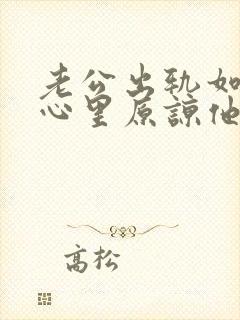 老公出轨如
心里原谅他
高松